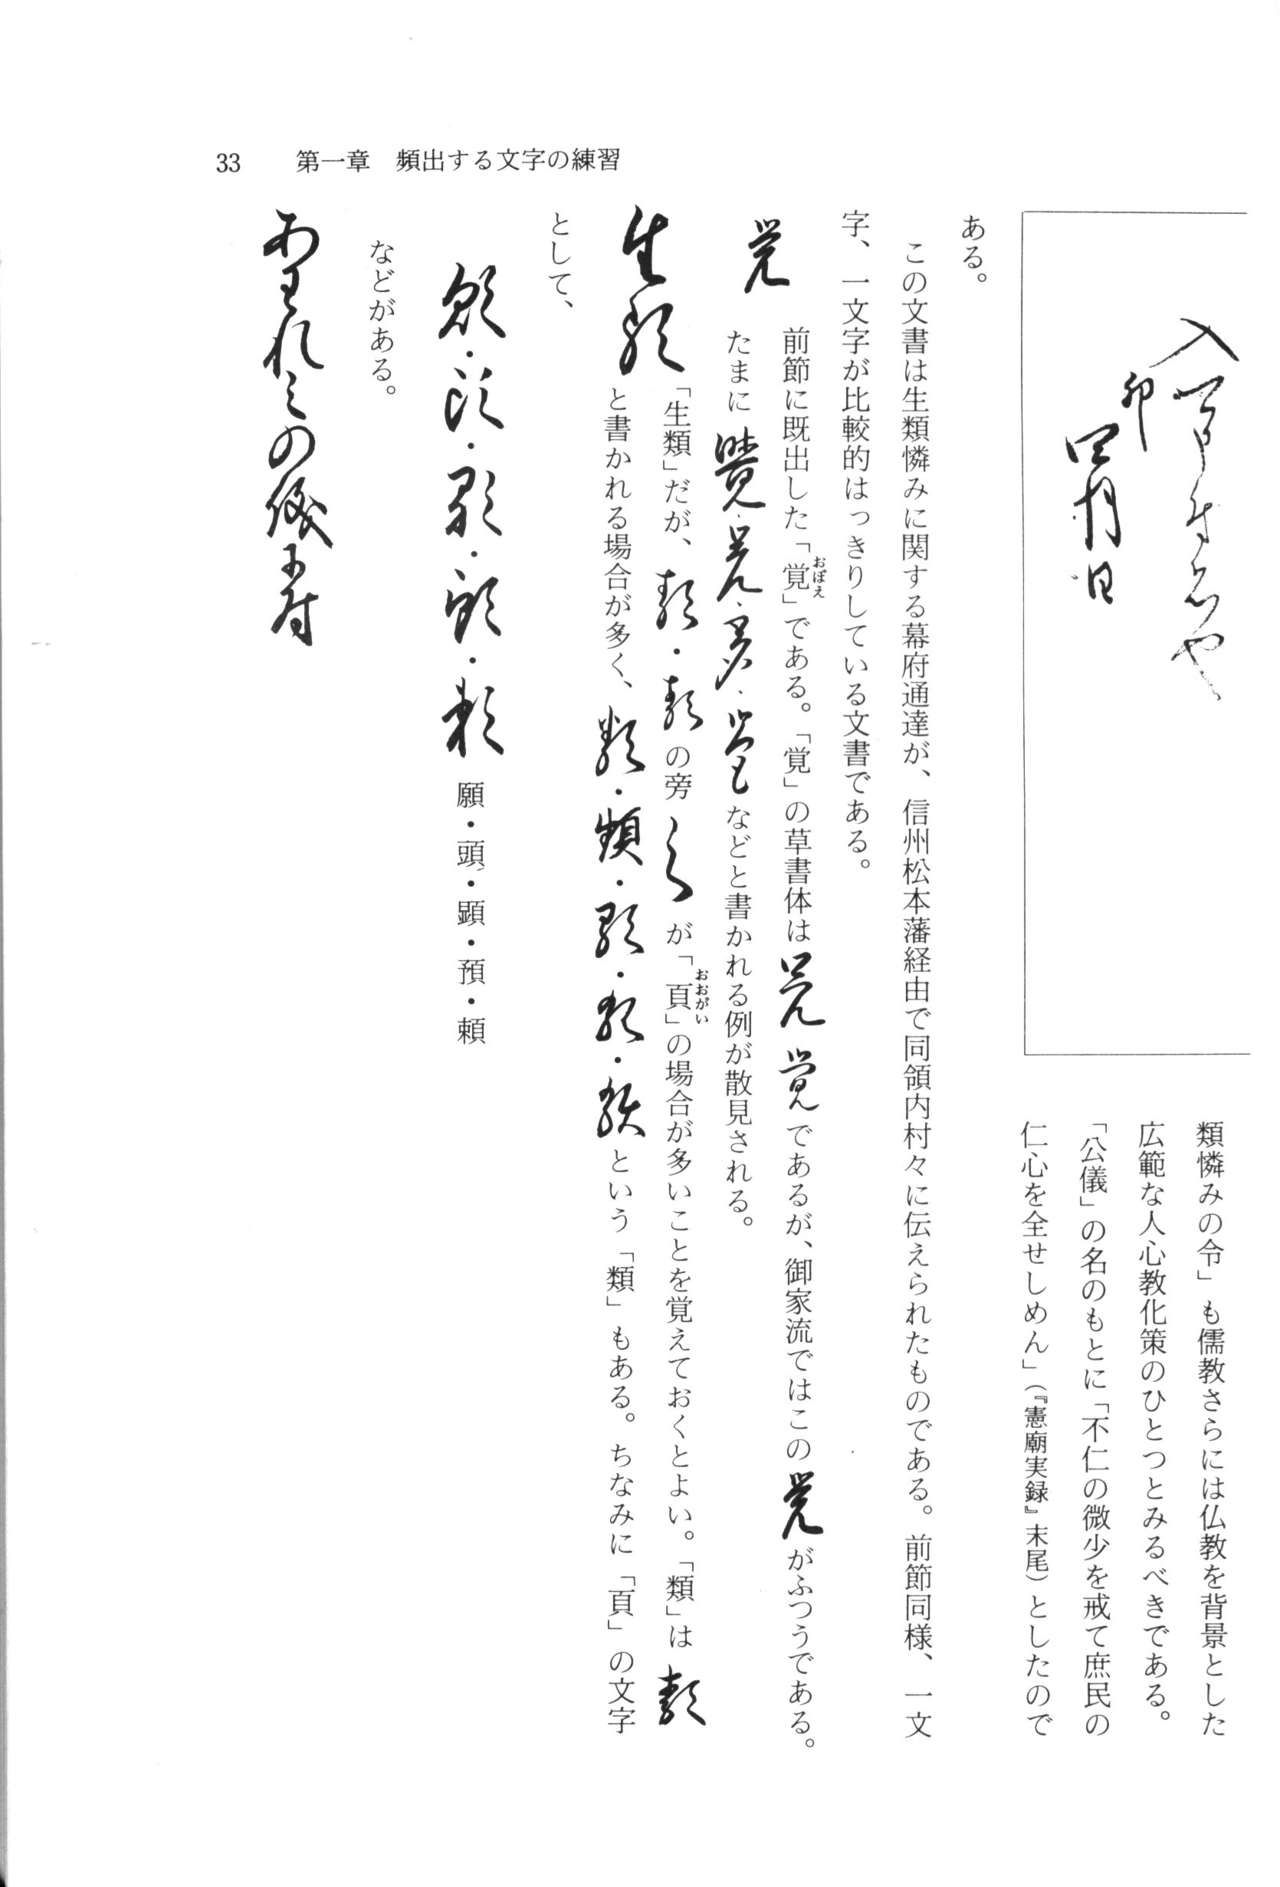 33　第一章　頻出する文字の練習
卯
四月日
類憐みの令」も儒教さらには仏教を背景とした
広範な人心教化策のひとつとみるべきである。
「公儀」の名のもとに「不仁の微少を戒て庶民の
仁心を全せしめん」（『憲廟実録』末尾）としたので
ある。
この文書は生類憐みに関する幕府通達が、信州松本藩経由で同領内村々に伝えられたものである。前節同様、一文
字、一文字が比較的はっきりしている文書である。
覚
前節に既出した「覚」である。「覚」の草書体は覚 覚であるが、御家流ではこの覚がふつうである。
おぼえ
たまに覚・覚・覚・覚などと書かれる例が散見される。
生類
「生類」だが、類・類の旁が「頁」の場合が多いことを覚えておくとよい。「類」は類
おおがい
と書かれる場合が多く、類・類・類・類・類という「類」もある。ちなみに「頁」の文字
として、
願・頭・顕・預・頼　願・頭・顕・預・頼
などがある。
あわれみの儀ニ付